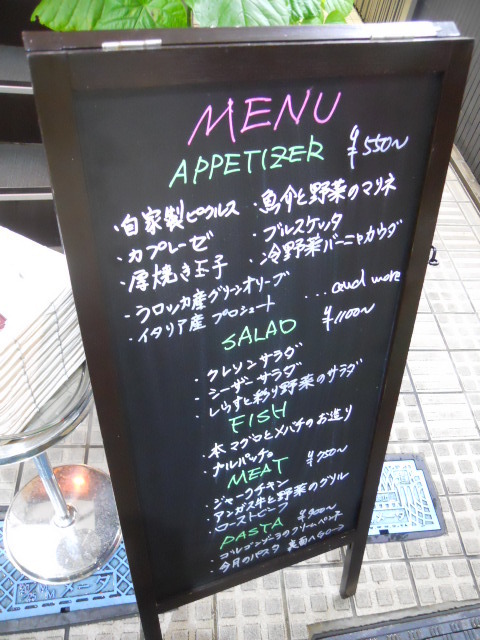 MENU
APPETIZER ¥550〜
・自家製ピクルス ・魚介と野菜のマリネ
・カプレーゼ ・ブルスケッタ
・厚焼き玉子 ・冷野菜バーニャカウダ
・ラロッカ産グリーンオリーブ
・イタリア産 プロシュート ...and more
SALAD ¥1100〜
・クレソンサラダ
・シーザーサラダ
・しらすと彩り野菜のサラダ
FISH
・本マグロとメバチのお造り
MEAT ¥750〜
・ジャークチキン
・アンガス牛と野菜のグリル
・ローストビーフ
PASTA ¥900〜
・ゴルゴンゾーラのクリームペンネ
・今月のパスタ 裏面へGO→